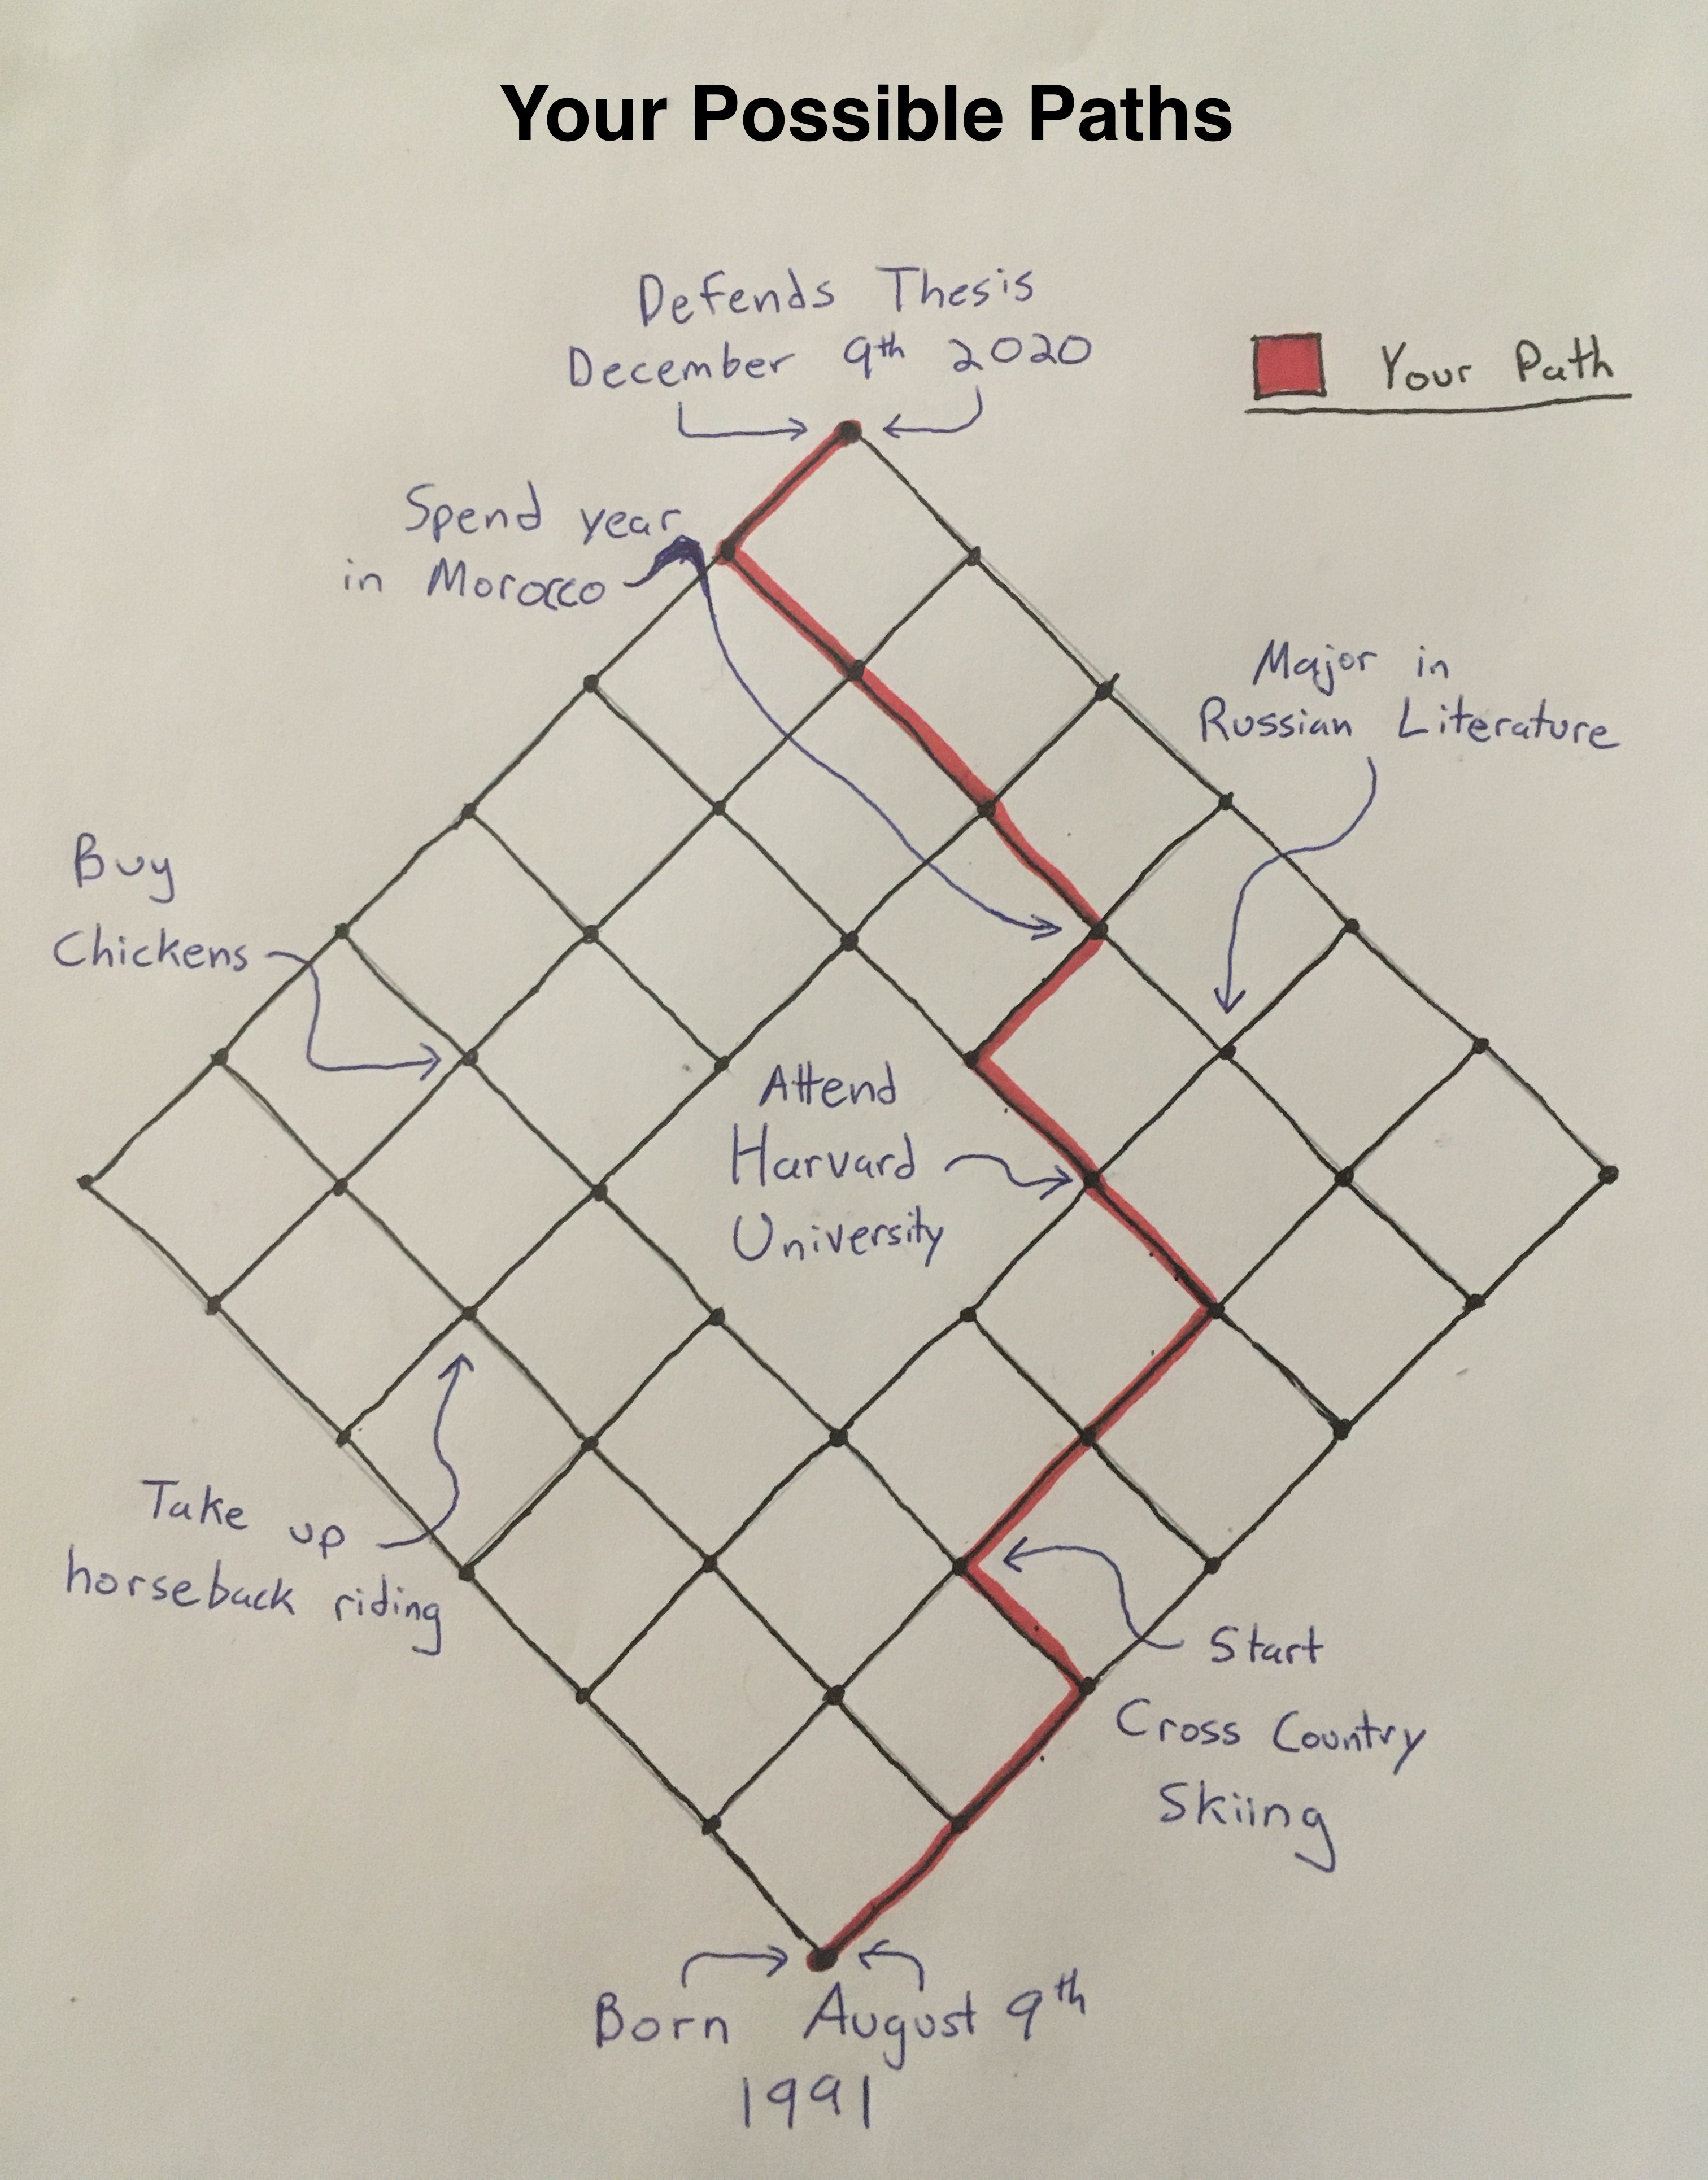 Your Possible Paths
Defends Thesis
December 9th 2020
Your Path
Spend year
in Morocco
Major in
Russian Literature
Buy
Chickens
Attend
Harvard
University
Take up
horseback riding
Start
Cross Country
Skiing
Born August 9th
1991